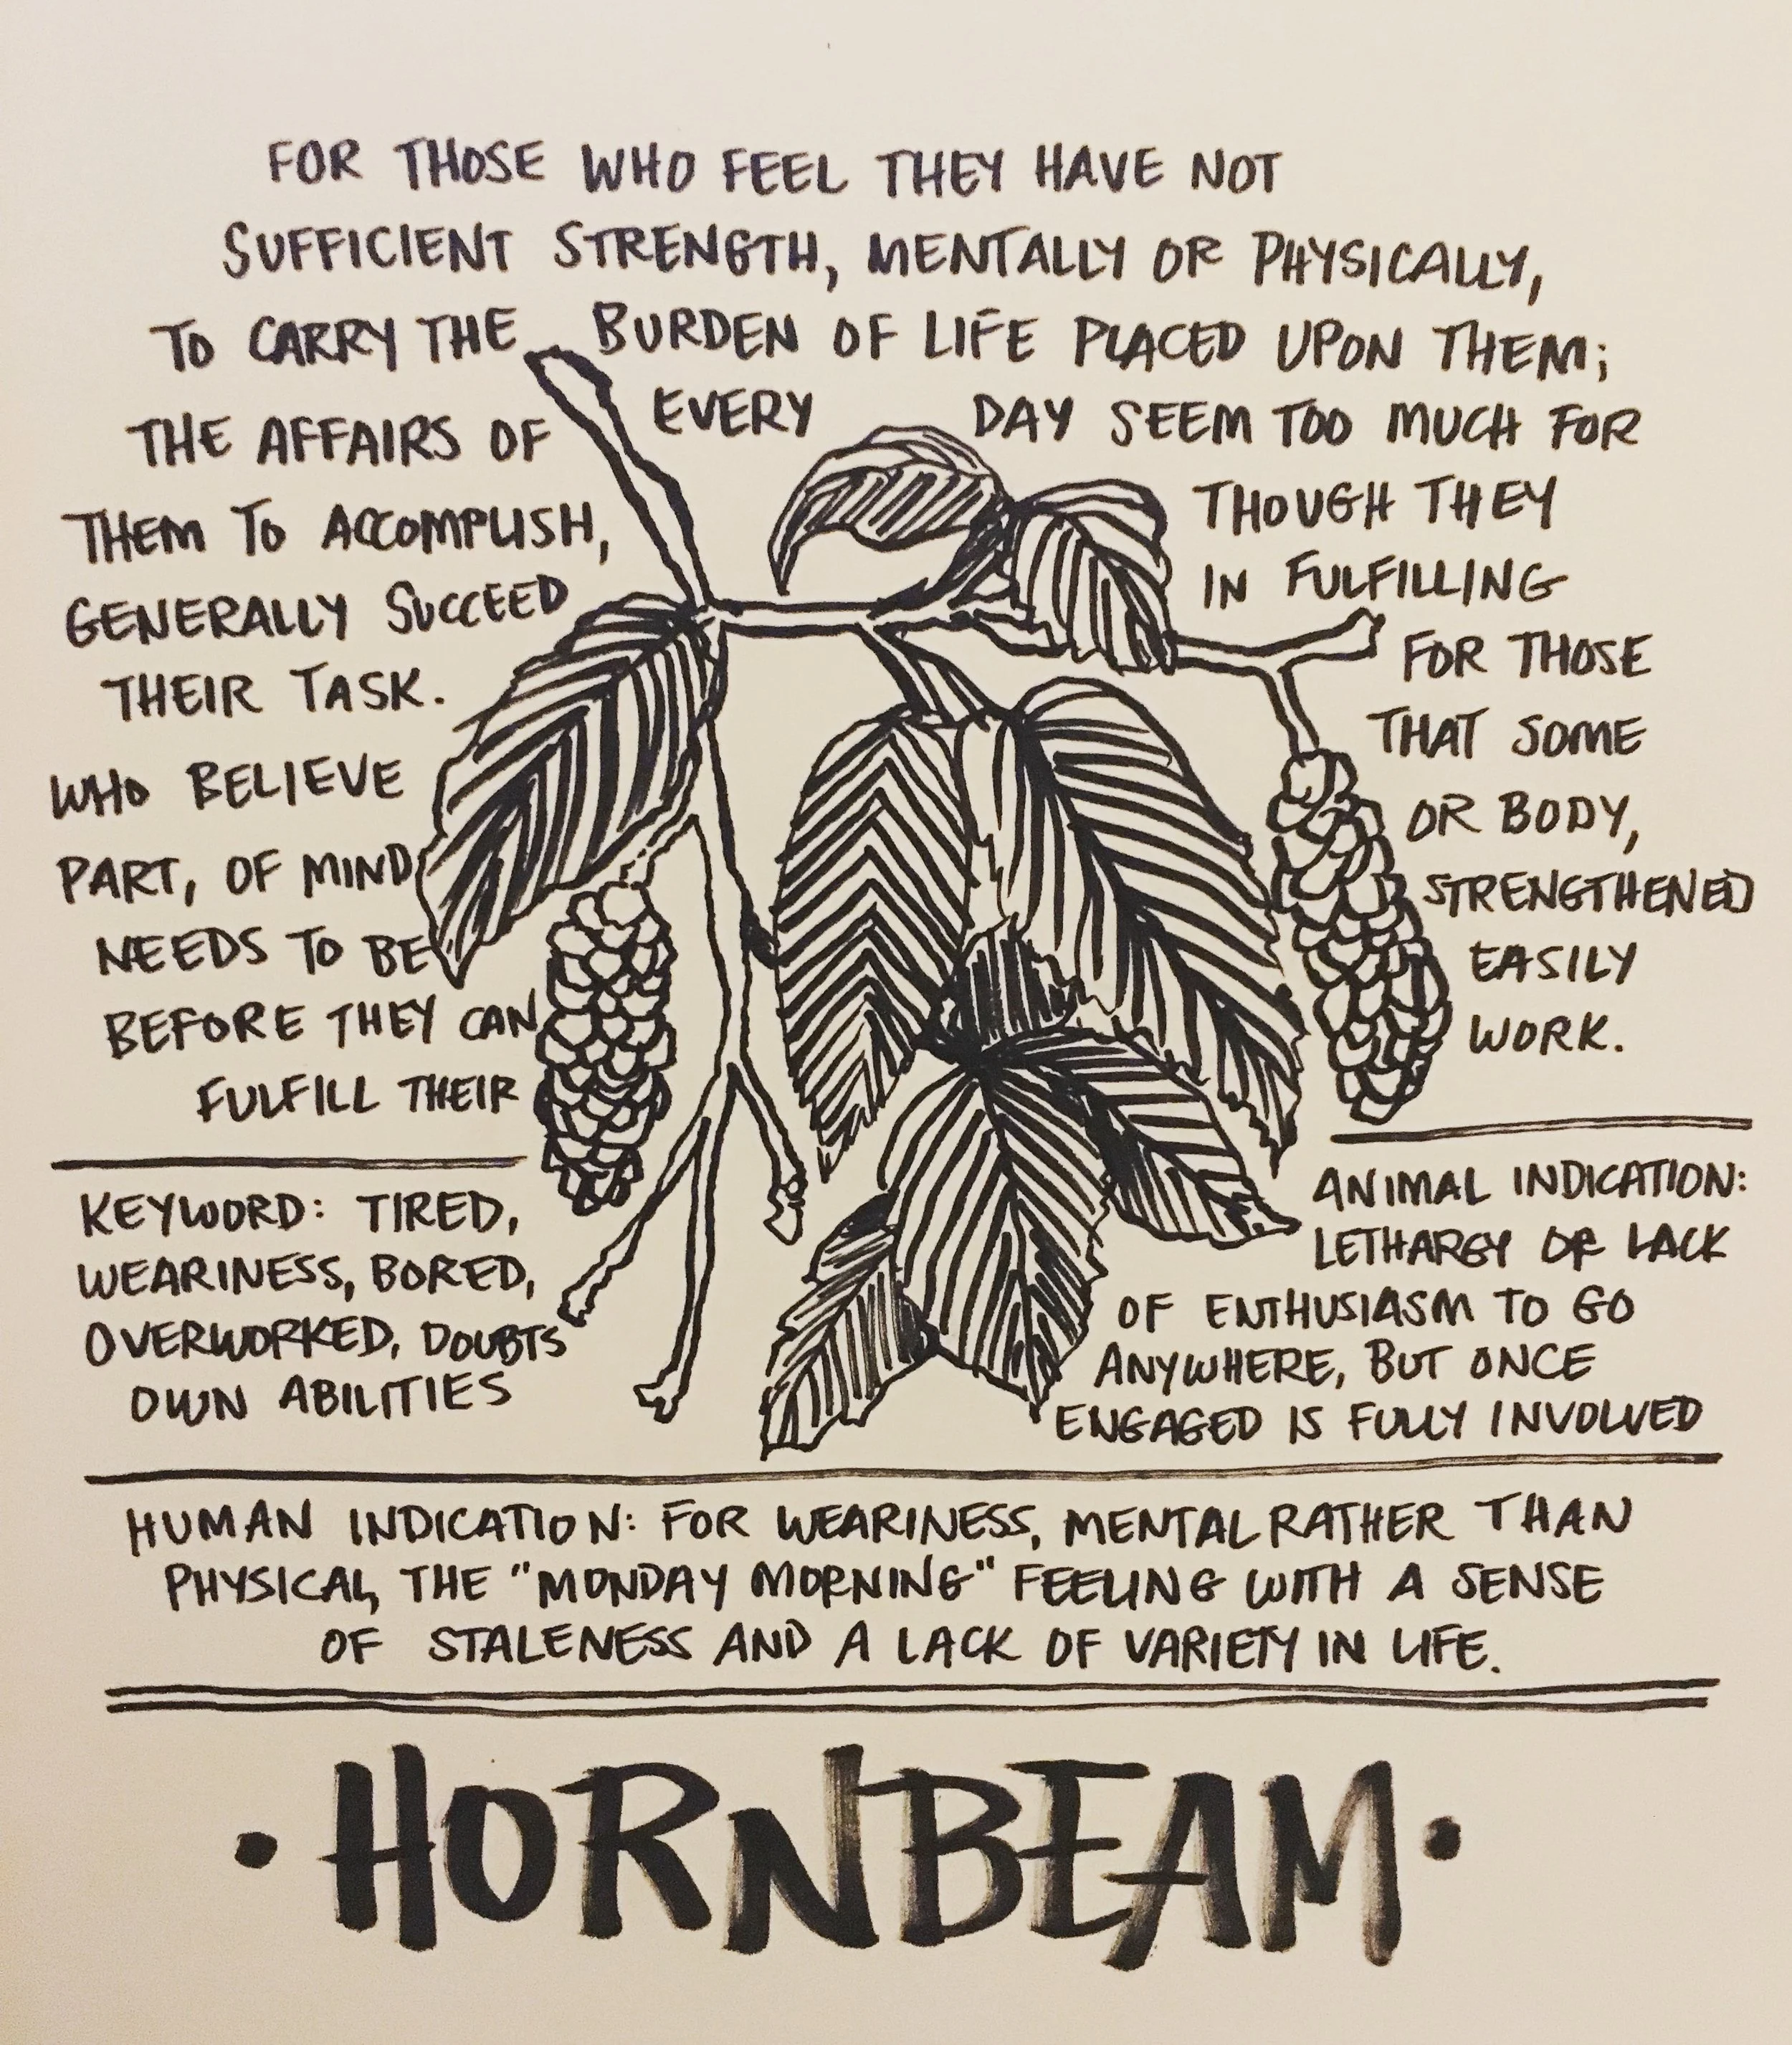 FOR THOSE WHO FEEL THEY HAVE NOT
SUFFICIENT STRENGTH, MENTALLY OR PHYSICALLY,
TO CARRY THE BURDEN OF LIFE PLACED UPON THEM;
THE AFFAIRS OF EVERY DAY SEEM TOO MUCH FOR
THEM TO ACCOMPLISH, THOUGH THEY
GENERALLY SUCCEED IN FULFILLING
THEIR TASK. FOR THOSE
WHO BELIEVE THAT SOME
PART, OF MIND OR BODY,
NEEDS TO BE STRENGTHENED
BEFORE THEY CAN EASILY
FULFILL THEIR WORK.
KEYWORD: TIRED,
WEARINESS, BORED,
OVERWORKED, DOUBTS
OWN ABILITIES
ANIMAL INDICATION:
LETHARGY OR LACK
OF ENTHUSIASM TO GO
ANYWHERE, BUT ONCE
ENGAGED IS FULLY INVOLVED
HUMAN INDICATION: FOR WEARINESS, MENTAL RATHER THAN
PHYSICAL, THE "MONDAY MORNING" FEELING WITH A SENSE
OF STALENESS AND A LACK OF VARIETY IN LIFE.
• HORNBEAM •